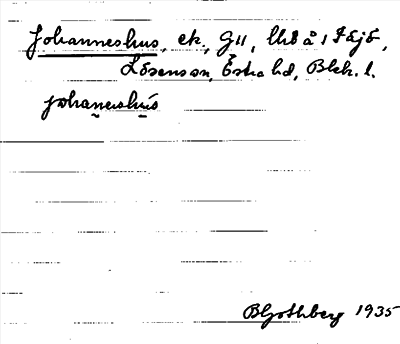 Johanneshus, ek., G11, lht å 1 Fäjö,
Lösensson, Östra hd, Blek. l.
johaneshús
B Gothberg 1935